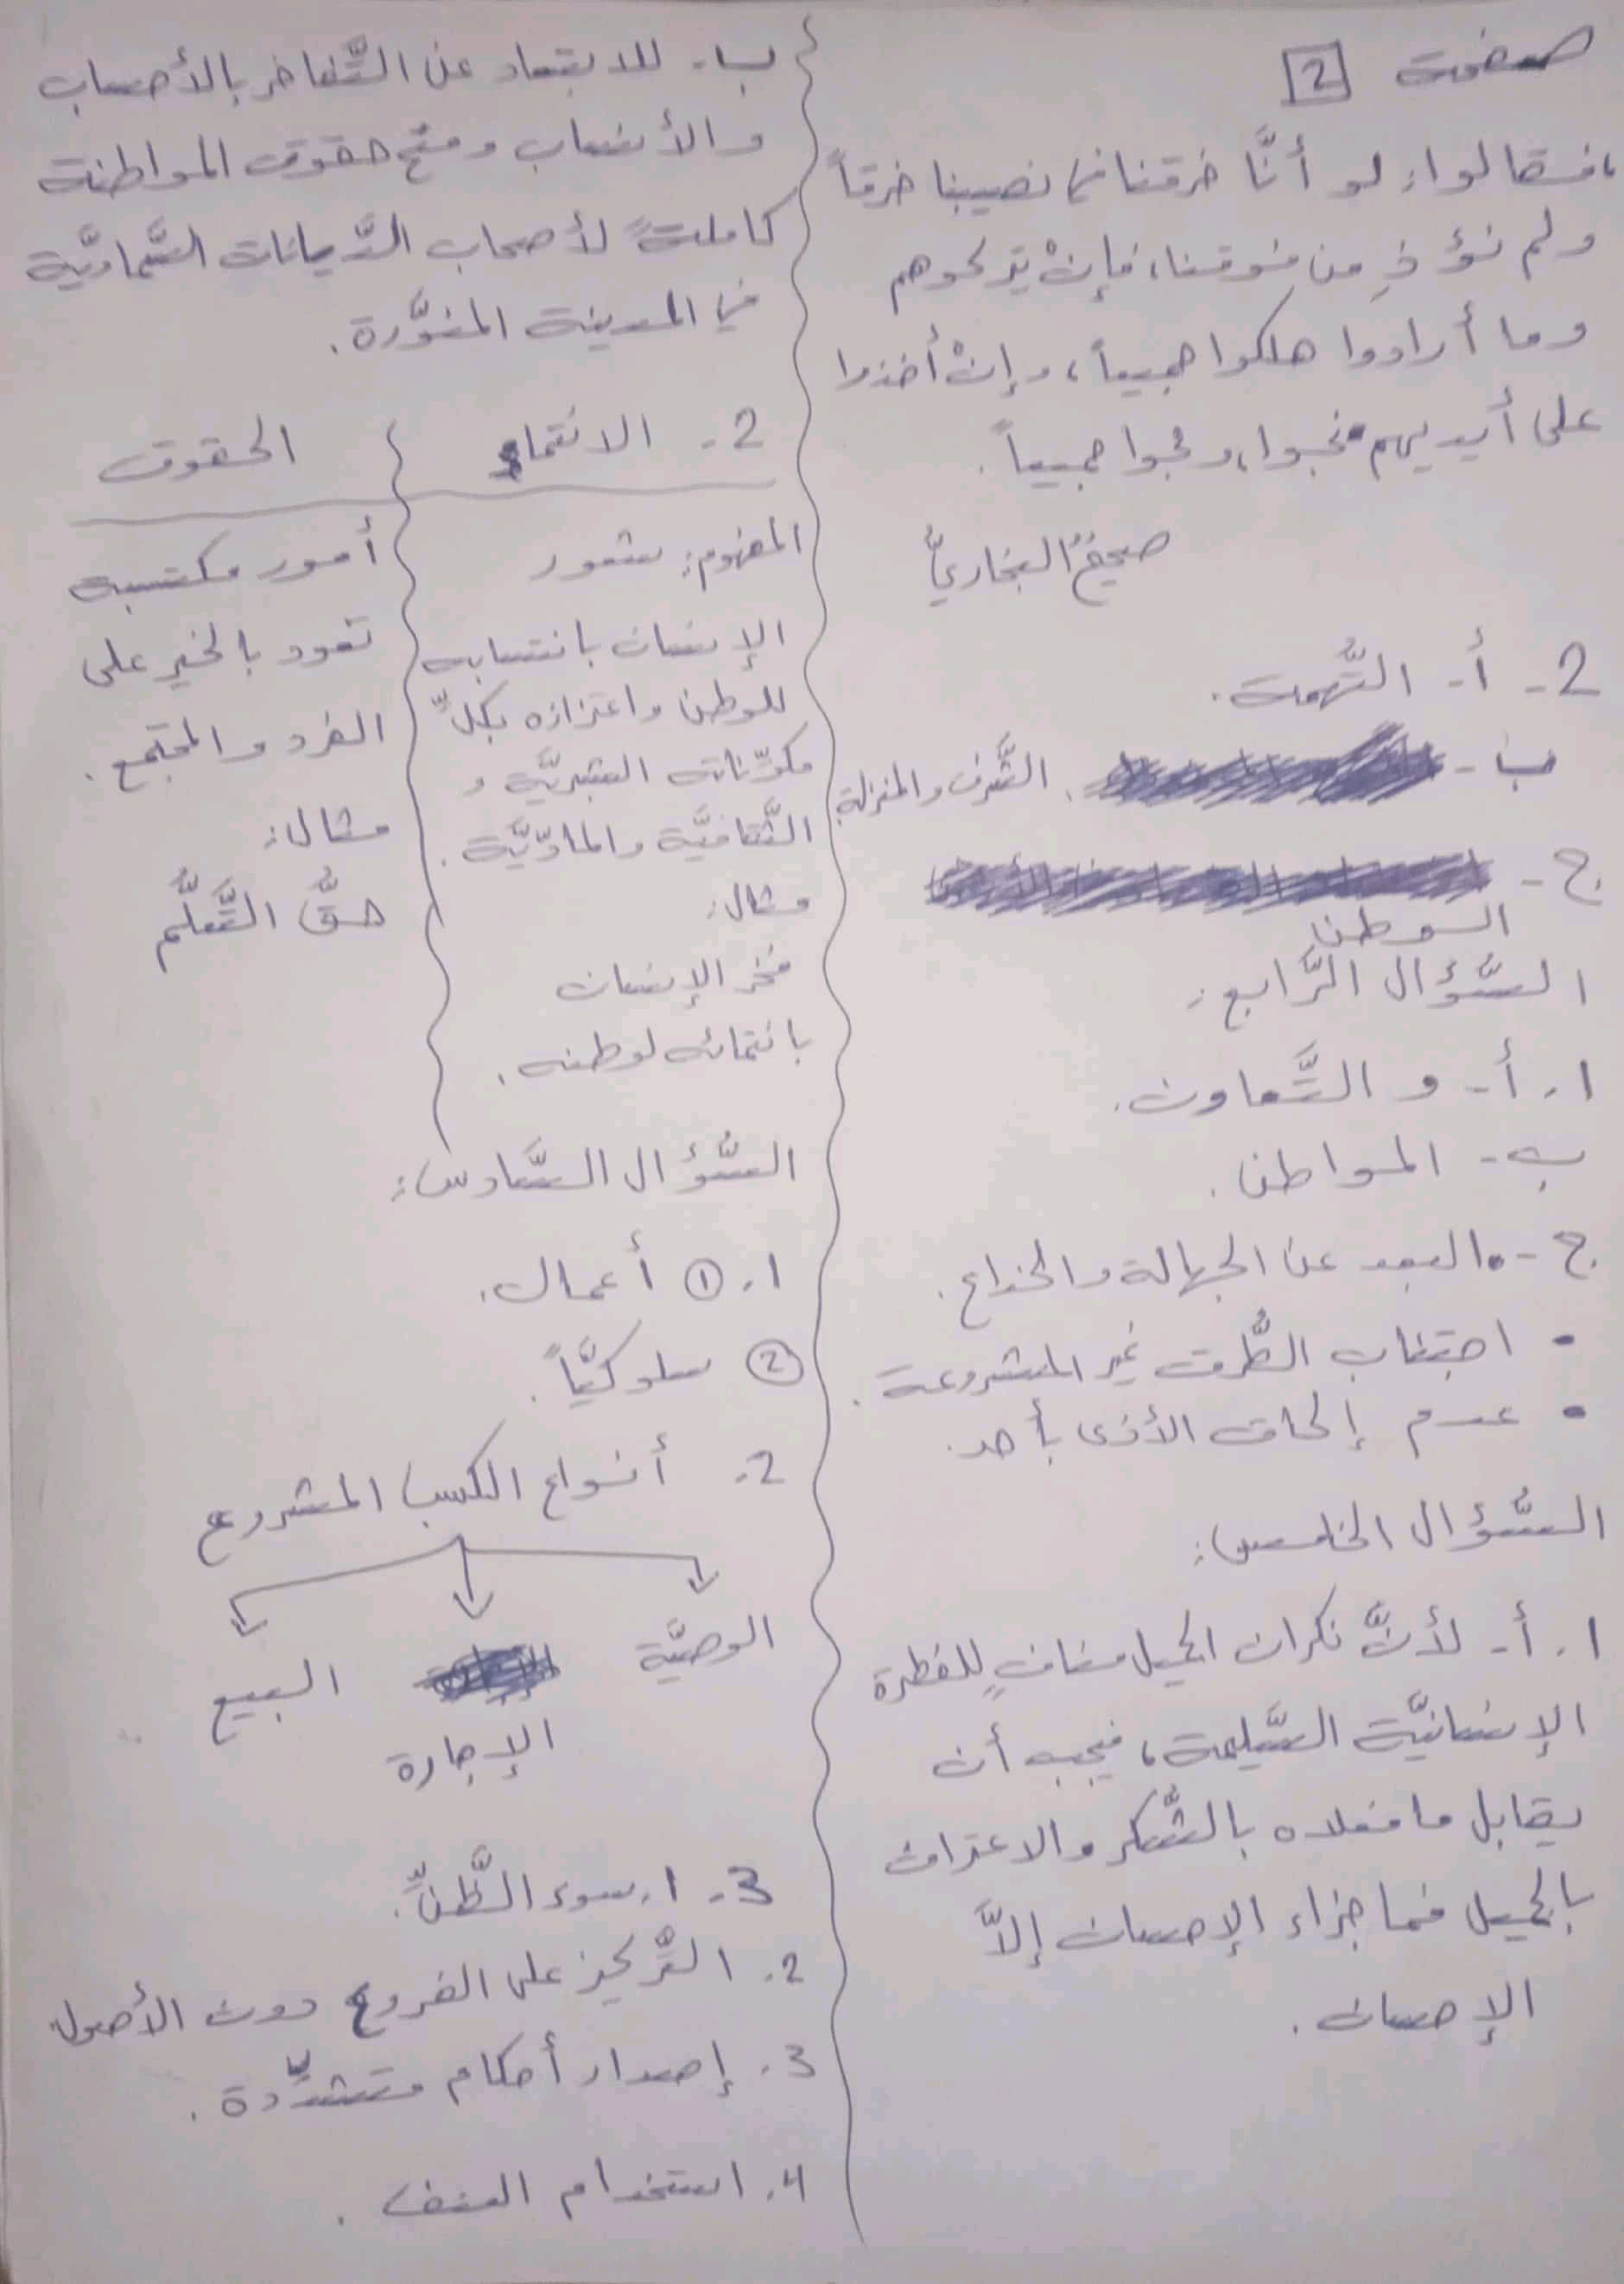 صفحة 2
، فقالوا: لو أنَّا خرقنا في نصيبنا خرقاً
ولم نؤذِ من فوقنا، فإنْ يتركوهم
وما أرادوا هلكوا جميعاً، وإنْ أخذوا
على أيديهم نجوا، ونجوا جميعاً.
صحيحُ البخاريِّ
2- أ- التُّهمة.
ب- الشَّرف والمنزلة.
ج-
الوطن
السُّؤال الرَّابع:
1. أ- و التَّعاون.
ب- المواطن.
ج- • البعد عن الجهالة والخداع.
• اجتناب الطُّرق غير المشروعة.
• عدم إلحاق الأذى بأحد.
السُّؤال الخامس:
1. أ- لأنَّ نكران الجميل منافٍ للفطرة
الإنسانيَّة السَّليمة، فيجب أن
يقابل ما فعلاه بالشُّكر والاعتراف
بالجميل فما جزاء الإحسان إلَّا
الإحسان.
ب- للابتعاد عن التَّفاخر بالأحساب
والأنساب ومنح حقوق المواطنة
كاملةً لأصحاب الدِّيانات السَّماويَّة
في المدينة المنوَّرة.
2- الانتماء
المفهوم: شعور
الإنسان بانتسابه
للوطن واعتزازه بكلِّ
مكوِّناته البشريَّة و
الثَّقافيَّة والمادّيَّة.
مثال:
فخر الإنسان
بانتمائه لوطنه.
الحقوق
أمور مكتسبة
تعود بالخير على
الفرد والمجتمع.
مثال:
حقُّ التَّعلُّم
السُّؤال السَّادس:
1. ① أعمال.
② سلوكيَّاً.
2. أنواع الكسب المشروع
الوصيَّة البيع
الإجارة
3- 1. سوء الظَّنِّ.
2. التَّركيز على الفروع دون الأصول.
3. إصدار أحكام متشدِّدة.
4. استخدام العنف.